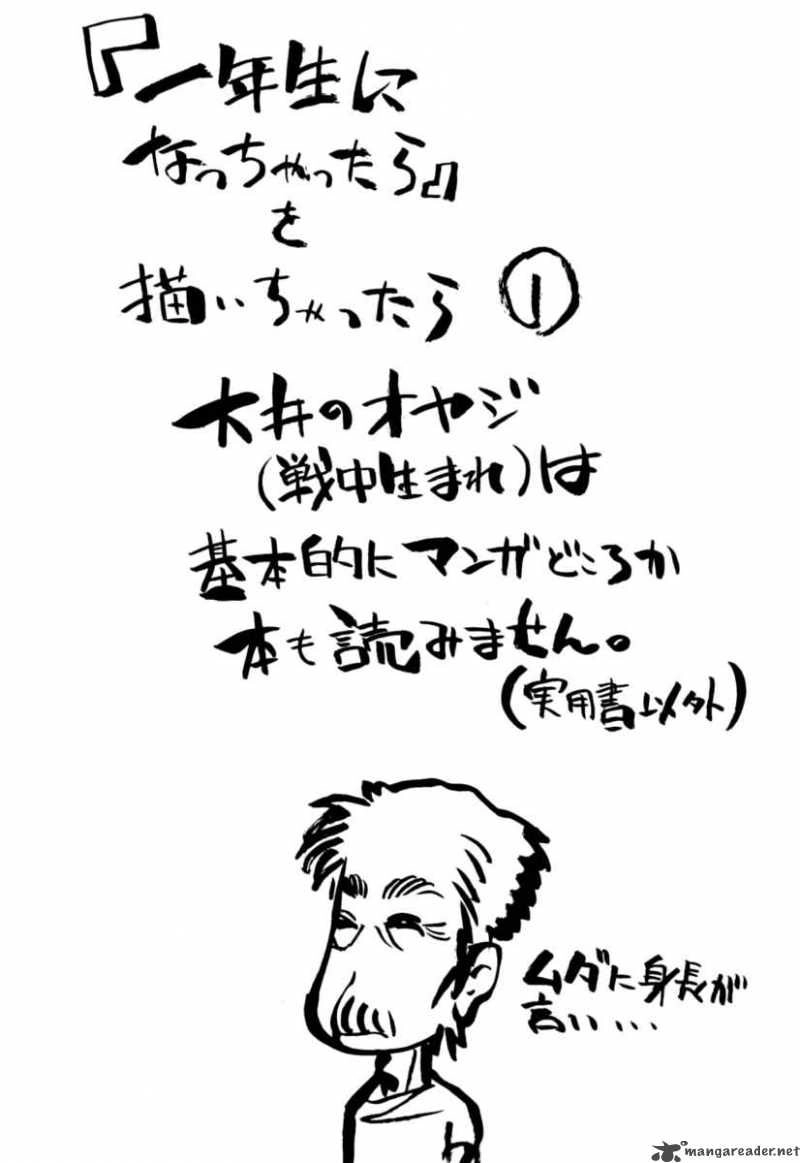 『一年生に
なっちゃったら』
を
描いちゃったら ①
大井のオヤジ
(戦中生まれ)は
基本的にマンガどころか
本も読みません。
(実用書以外)
ムダに身長が
言い…
mangareader.net